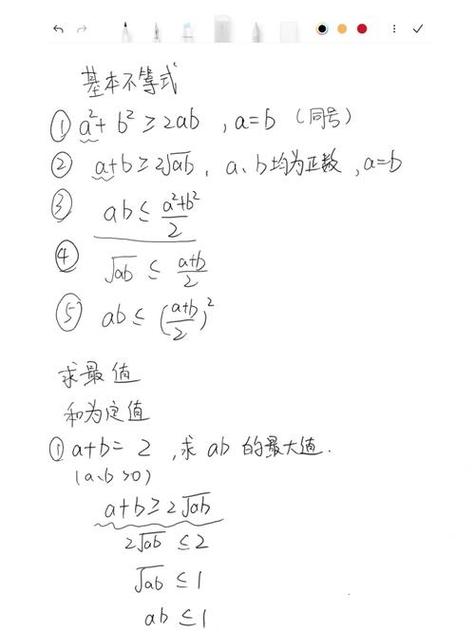 基本不等式
① a²+b² ≥ 2ab , a=b (同号)
② a+b ≥ 2√ab , a、b均为正数 , a=b
③ ab ≤ (a²+b²)/2
④ √ab ≤ (a+b)/2
⑤ ab ≤ ((a+b)/2)²
求最值
和为定值
① a+b= 2 , 求 ab 的最大值.
(a、b >0)
a+b ≥ 2√ab
2√ab ≤ 2
√ab ≤ 1
ab ≤ 1